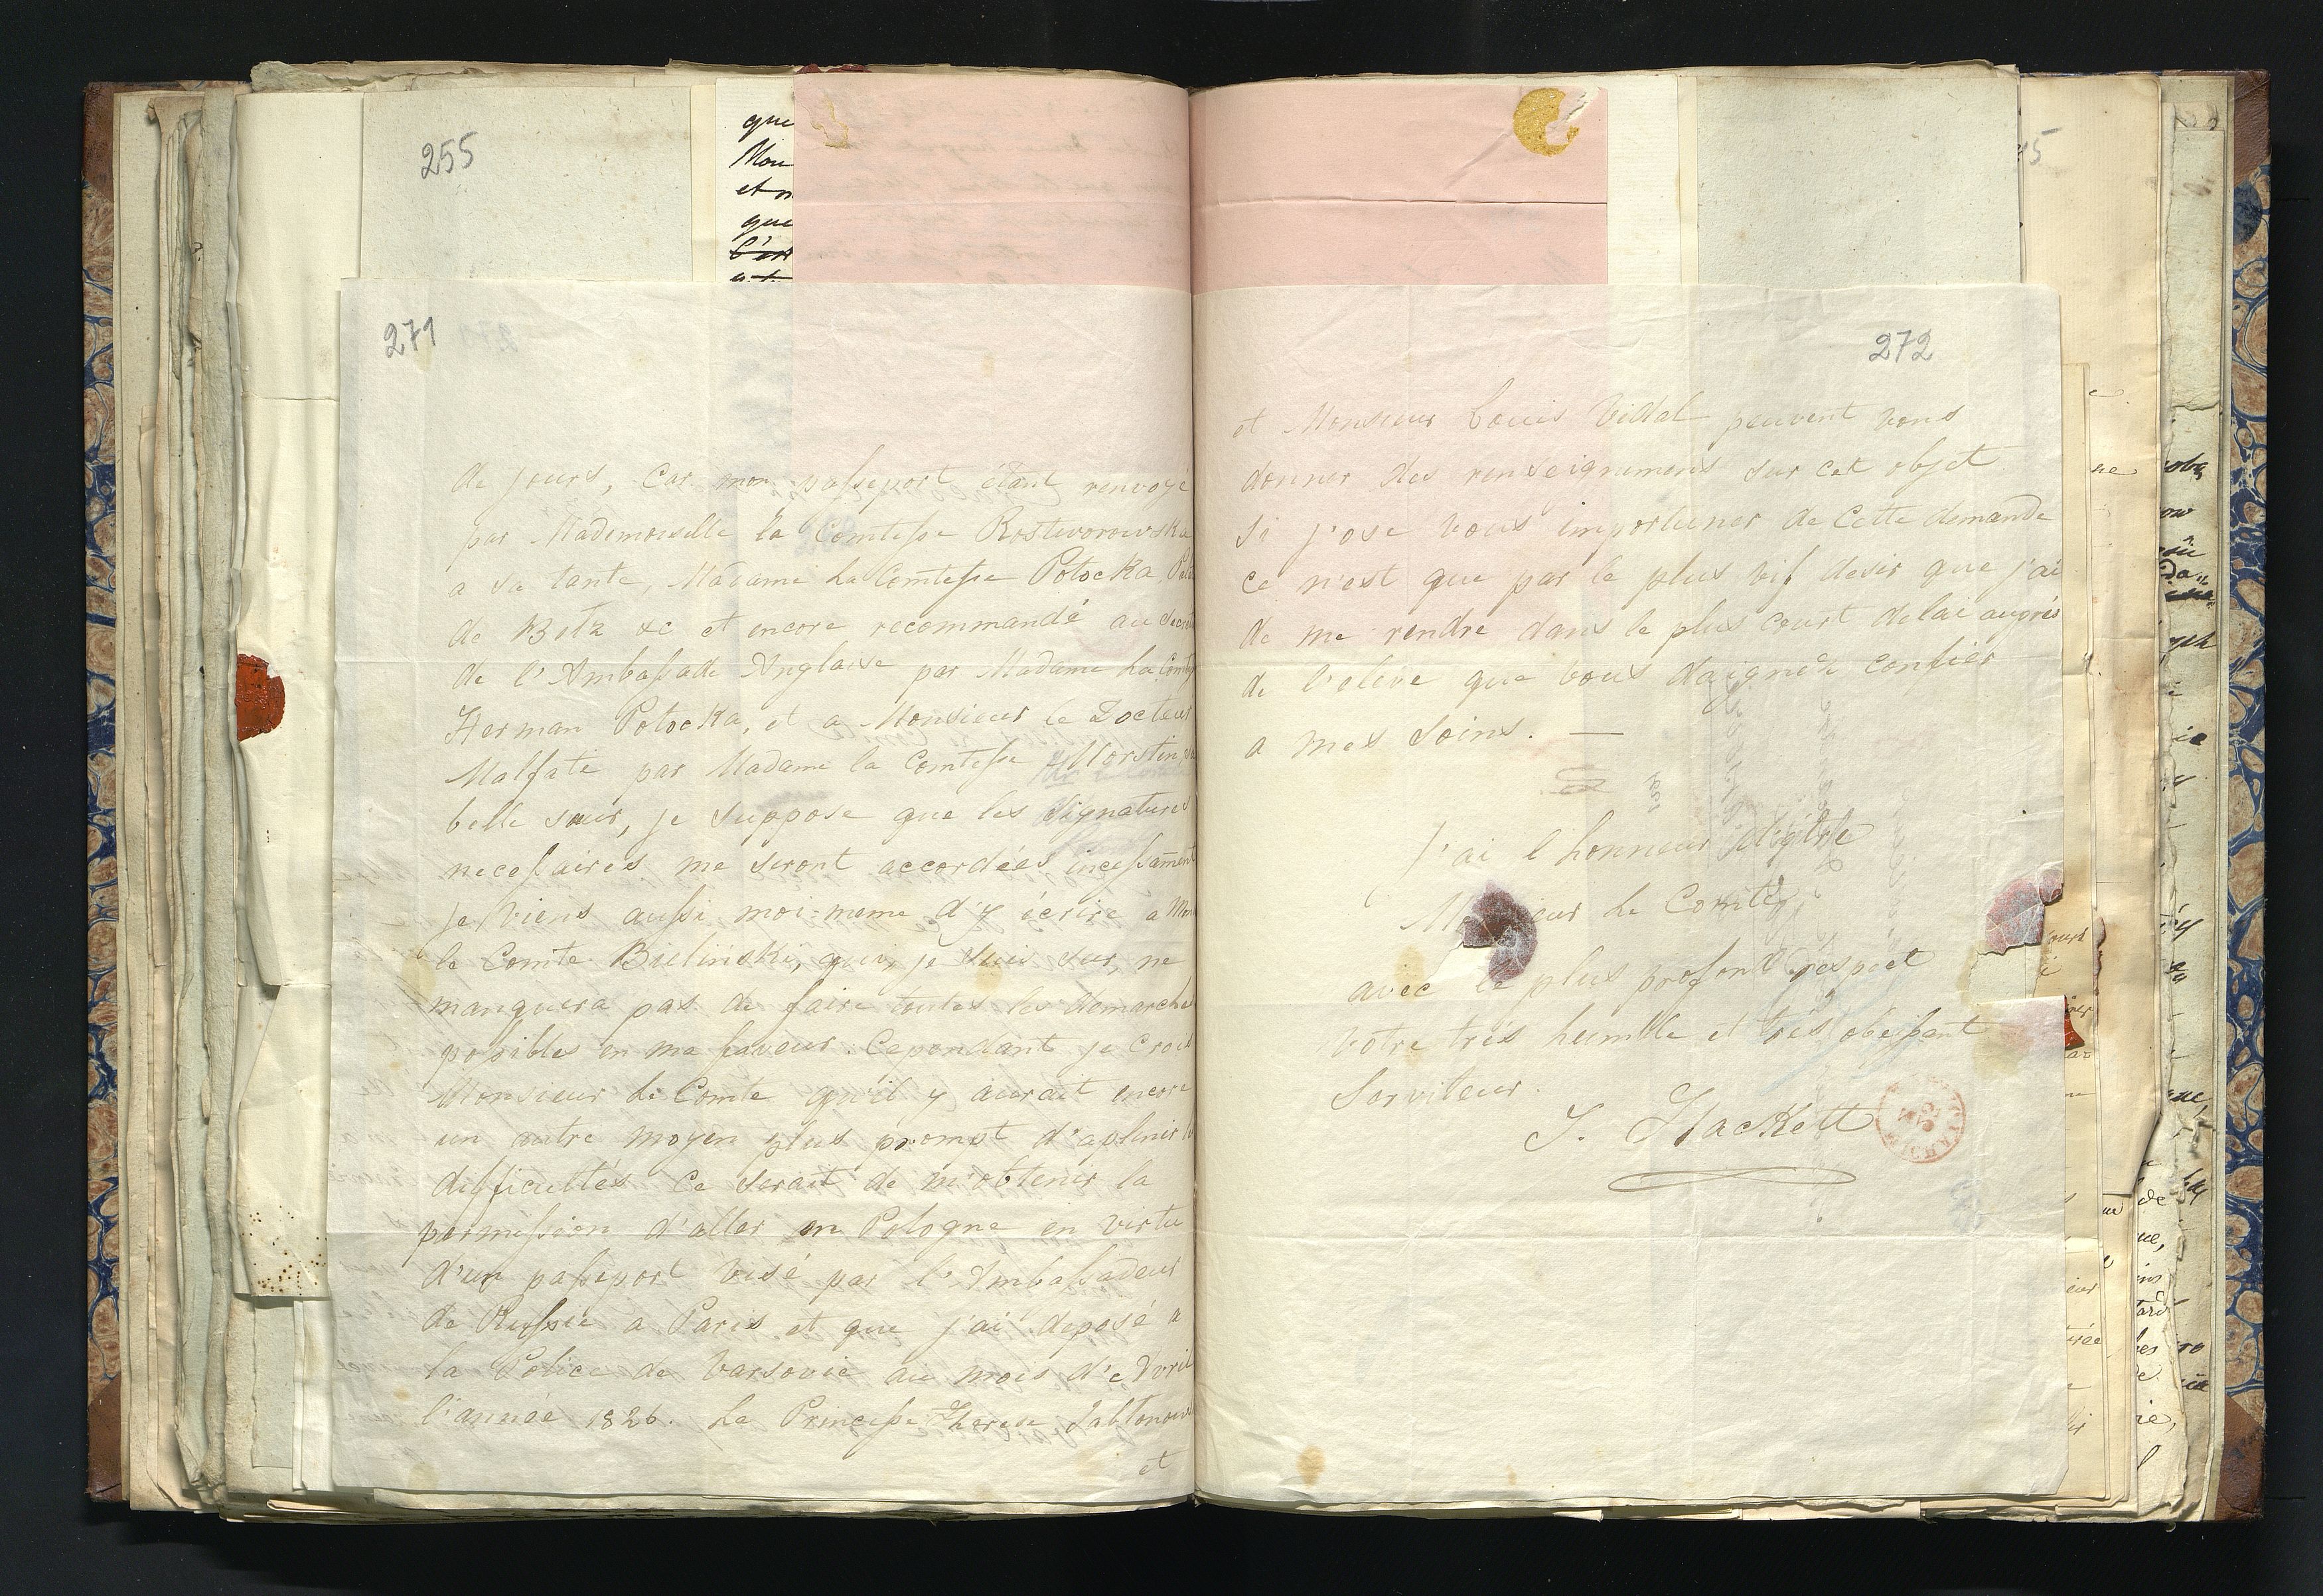 255
que
Mon
et n
que
271
de jours, Car mon passeport étant renvoyé
par Mademoiselle la Comtesse Rostworowska
a sa tante, Madame La Comtesse Potocka
de &c et encore recommandé au Secret
de l'Ambassade Anglaise par Madame La Comt
Herman Potocka, et a Monsieur le Docteur
Malfati par Madame la Comtesse Morstin, sa
belle sœur, je suppose que les signatures
necessaires me seront accordées incessament
je viens aussi moi-meme d'y écrire a Mon
le Comte Bielinski, qui, je suis sur, ne
manquera pas de faire toutes les demarches
possibles en ma faveur. Cependant je Crois
Monsieur Le Comte qu'il y aurait encore
un autre moyen plus prompt d'aplinir
difficultés Ce serait de m'obtenir la
permission d'aller en Pologne en virtu
d'un passeport visé par l'Ambassadeur
de Russie a Paris et que j'ai deposé a
la Police de Varsovie au mois d'Avril
l'année 1826. La Princesse Therese Jablonows
et
272
et Monsieur Louis Vidal peuvent vous
donner des renseignements sur cet objet
Si j'ose vous importuner de Cette demande
Ce n'est que par le plus vif desir que j'ai
de me rendre dans le plus court delai auprés
de l'elève que vous daignez confier
a mes soins. —
J'ai l'honneur d'être
M eur Le Comte,
avec le plus profond respect
Votre trés humble et trés obeissant
Serviteur.
J. Hackett